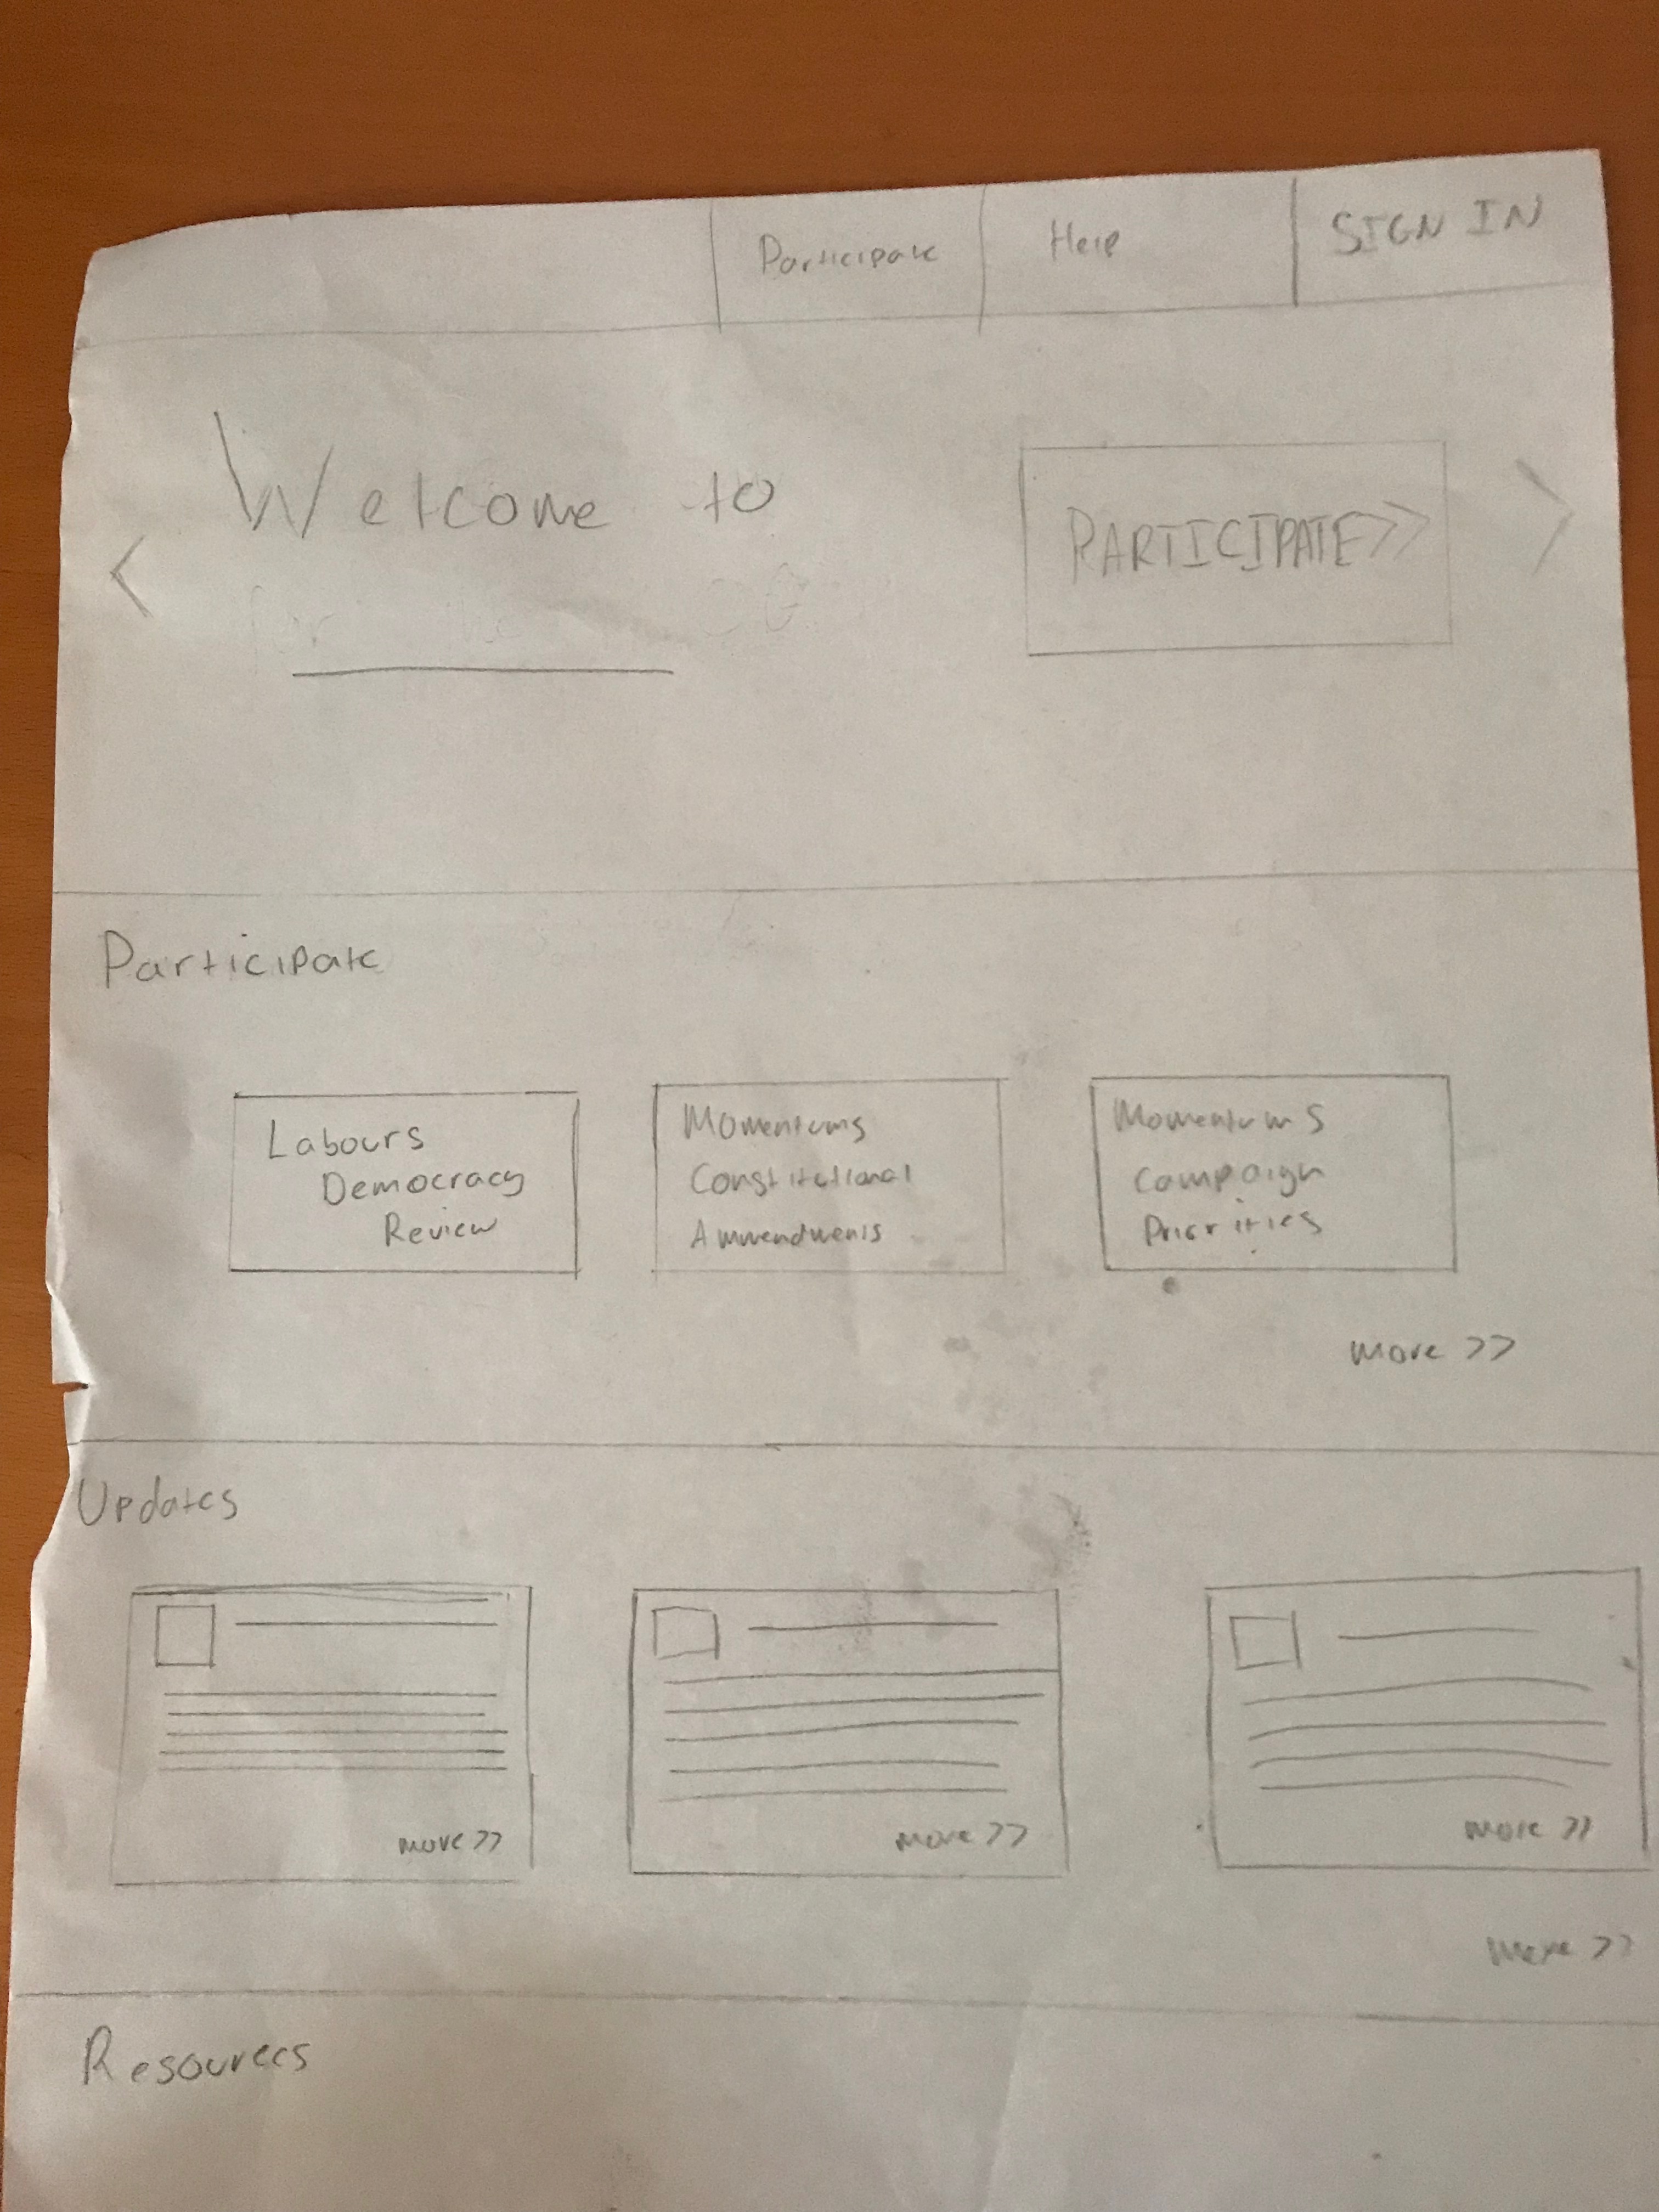 Participate Help SIGN IN
Welcome to
<
PARTICIPATE>>
>
Participate
Labours
Democracy
Review
Momentums
Constitutional
Ammendments
Momentums
Campaign
Priorities
more >>
Updates
more >>
more >>
more >>
more >>
Resources